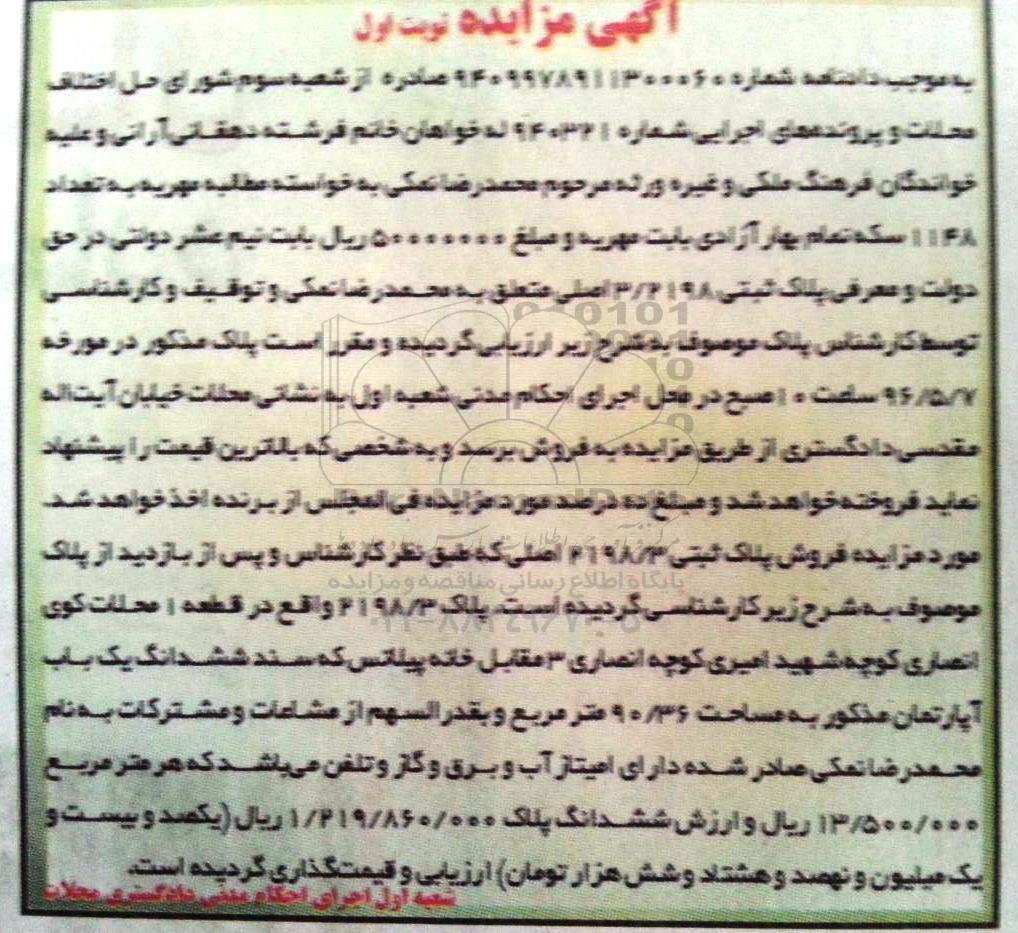 آگهی مزایده نوبت اول
به موجب دادنامه شماره ۹۴۰۹۹۷۸۹۱۱۳۰۰۰۶۰ صادره از شعبه سوم شورای حل اختلاف
محلات و پرونده‌های اجرایی شماره ۹۴۰۳۲۱ له خواهان خانم فرشته دهقانی آرانی و علیه
خواندگان فرهنگ ملکی و غیره ورثه مرحوم محمدرضا نمکی به خواسته مطالبه مهریه به تعداد
۱۱۴۸ سکه تمام بهار آزادی بابت مهریه و مبلغ ۵۰۰۰۰۰۰۰ ریال بابت نیم عشر دولتی در حق
دولت و معرفی پلاک ثبتی ۳/۲۱۹۸ اصلی متعلق به محمدرضا نمکی و توقیف و کارشناسی
توسط کارشناس پلاک موصوف به شرح زیر ارزیابی گردیده و مقرر است پلاک مذکور در مورخه
۹۶/۵/۷ ساعت ۱۰ صبح در محل اجرای احکام مدنی شعبه اول به نشانی محلات خیابان آیت‌اله
مقدسی دادگستری از طریق مزایده به فروش برسد و به شخصی که بالاترین قیمت را پیشنهاد
نماید فروخته خواهد شد و مبلغ ده درصد مورد مزایده فی‌المجلس از برنده اخذ خواهد شد.
مورد مزایده فروش پلاک ثبتی ۲۱۹۸/۳ اصلی که طبق نظر کارشناس و پس از بازدید از پلاک
پایگاه اطلاع رسانی مناقصه و مزایده
موصوف به شرح زیر کارشناسی گردیده است. پلاک ۲۱۹۸/۳ واقع در قطعه ۱ محلات کوی
انصاری کوچه شهید امیری کوچه انصاری ۳ مقابل خانه پیلاتس که سند ششدانگ یک باب
آپارتمان مذکور به مساحت ۹۰/۳۶ متر مربع و بقدرالسهم از مشاعات و مشترکات به نام
محمدرضا نمکی صادر شده دارای امتیاز آب و برق و گاز و تلفن می‌باشد که هر متر مربع
۱۳/۵۰۰/۰۰۰ ریال و ارزش ششدانگ پلاک ۱/۲۱۹/۸۶۰/۰۰۰ ریال (یکصد و بیست و
یک میلیون و نهصد و هشتاد و شش هزار تومان) ارزیابی و قیمت‌گذاری گردیده است.
شعبه اول اجرای احکام مدنی دادگستری محلات